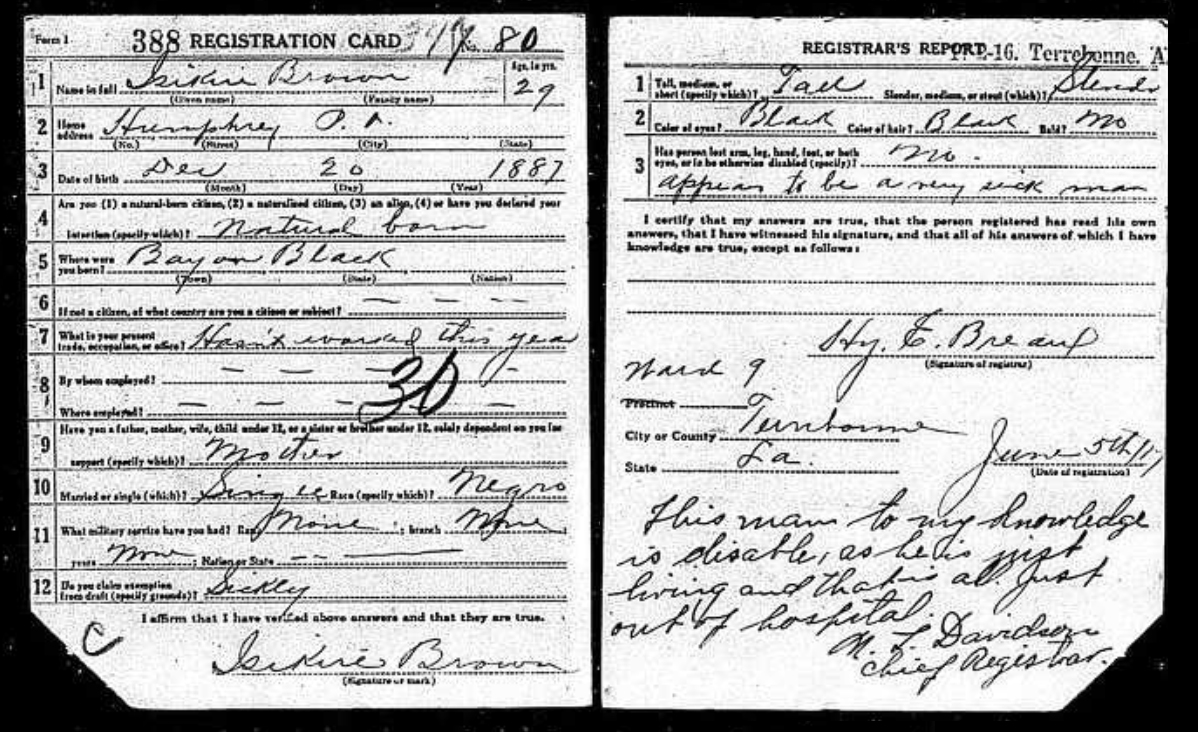 Form 1 388 REGISTRATION CARD No. 80
1 Name in full Isikire Brown Age, in yrs. 29
(Given name) (Family name)
2 Home address Humphrey P. A.
(No.) (Street) (City) (State)
3 Date of birth Dec 20 1887
(Month) (Day) (Year)
4 Are you (1) a natural-born citizen, (2) a naturalized citizen, (3) an alien, (4) or have you declared your
intention (specify which)? Natural born
5 Where were you born? Bayou Black
(Town) (State) (Nation)
6 If not a citizen, of what country are you a citizen or subject? — — — —
7 What is your present trade, occupation, or office? Hasn't worked this year
8 By whom employed? — — — — —
Where employed? — — — —
30
9 Have you a father, mother, wife, child under 12, or a sister or brother under 12, solely dependent on you for
support (specify which)? Mother
10 Married or single (which)? Single Race (specify which)? Negro
11 What military service have you had? Rank None ; branch None ;
years None ; Nation or State — — —
12 Do you claim exemption from draft (specify grounds)? Sickly
I affirm that I have verified above answers and that they are true.
C
Isikire Brown
(Signature or mark)
REGISTRAR'S REPORT 17-2-16. Terrebonne. A
1 Tall, medium, or short (specify which)? Tall Slender, medium, or stout (which)? Slender
2 Color of eyes? Black Color of hair? Black Bald? No
3 Has person lost arm, leg, hand, foot, or both eyes, or is he otherwise disabled (specify)? No.
appears to be a very sick man
I certify that my answers are true, that the person registered has read his own
answers, that I have witnessed his signature, and that all of his answers of which I have
knowledge are true, except as follows:
Hy. E. Breaux
(Signature of registrar)
Ward 9
Precinct
City or County Terrebonne
State La.
June 5th/17
(Date of registration)
This man to my knowledge
is disable, as he is just
living and that is all. Just
out of hospital.
M. L. Davidson
Chief Registrar.